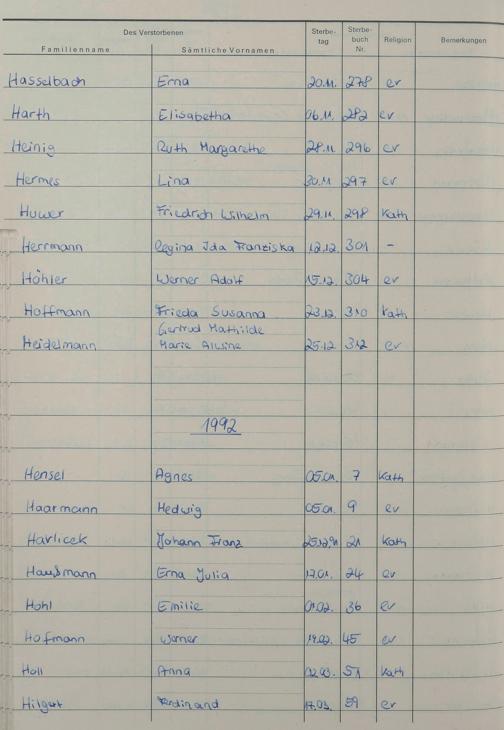 Des Verstorbenen Sterbe-tag Sterbe-buch Nr. Religion Bemerkungen
Familienname Sämtliche Vornamen
Hasselbach Erna 20.11. 278 ev
Harth Elisabetha 06.11. 282 ev
Heinig Ruth Margarethe 28.11 296 ev
Hermes Lina 30.11 297 ev
Huwer Friedrich Wilhelm 29.11. 298 Kath
Herrmann Regina Ida Franziska 12.12. 301 -
Höhler Werner Adolf 15.12. 304 ev
Hoffmann Frieda Susanna 23.12. 310 Kath
Gertrud Mathilde
Heidelmann Marie 25.12. 312 ev
1992
Hensel Agnes 05.01. 7 Kath
Haarmann Hedwig 05.01. 9 ev
Havlicek Johann Franz 25.12.91 21 Kath
Haußmann Erna Julia 17.01. 24 ev
Hohl Emilie 01.02. 36 ev
Hofmann Werner 14.02. 45 ev
Holl Anna 02.03. 51 Kath
Hilgert Ferdinand 17.03. 59 ev